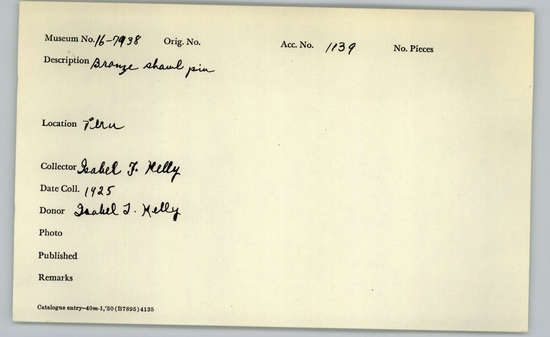 Museum No. 16-7938 Orig. No. Acc. No. 1139 No. Pieces
Description Bronze shawl pin
Location Peru
Collector Isabel T. Kelly
Date Coll. 1925
Donor Isabel T. Kelly
Photo
Published
Remarks
Catalogue entry-40m-1,'50 (B7895) 4135